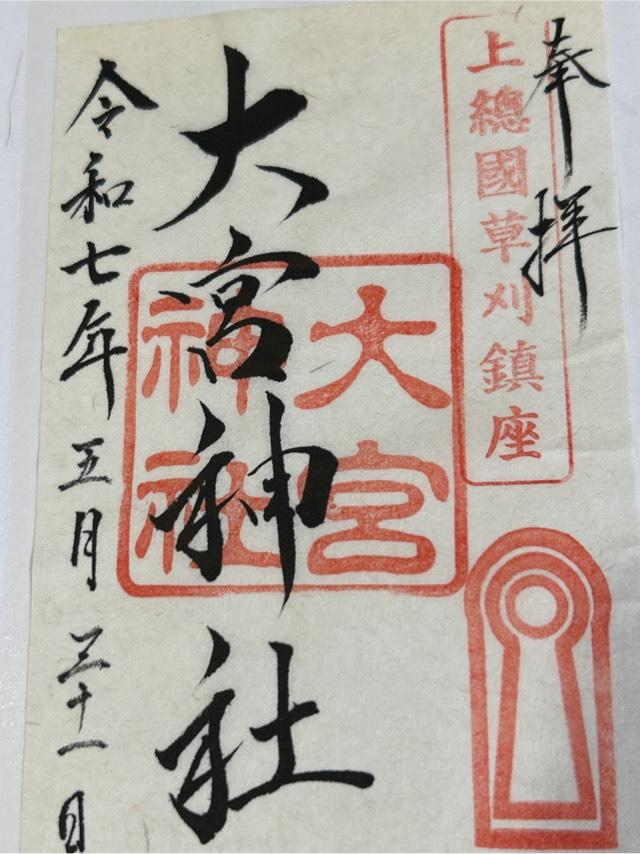 奉拝
上總國草刈鎮座
大宮神社
大宮神社
令和七年五月三十一日